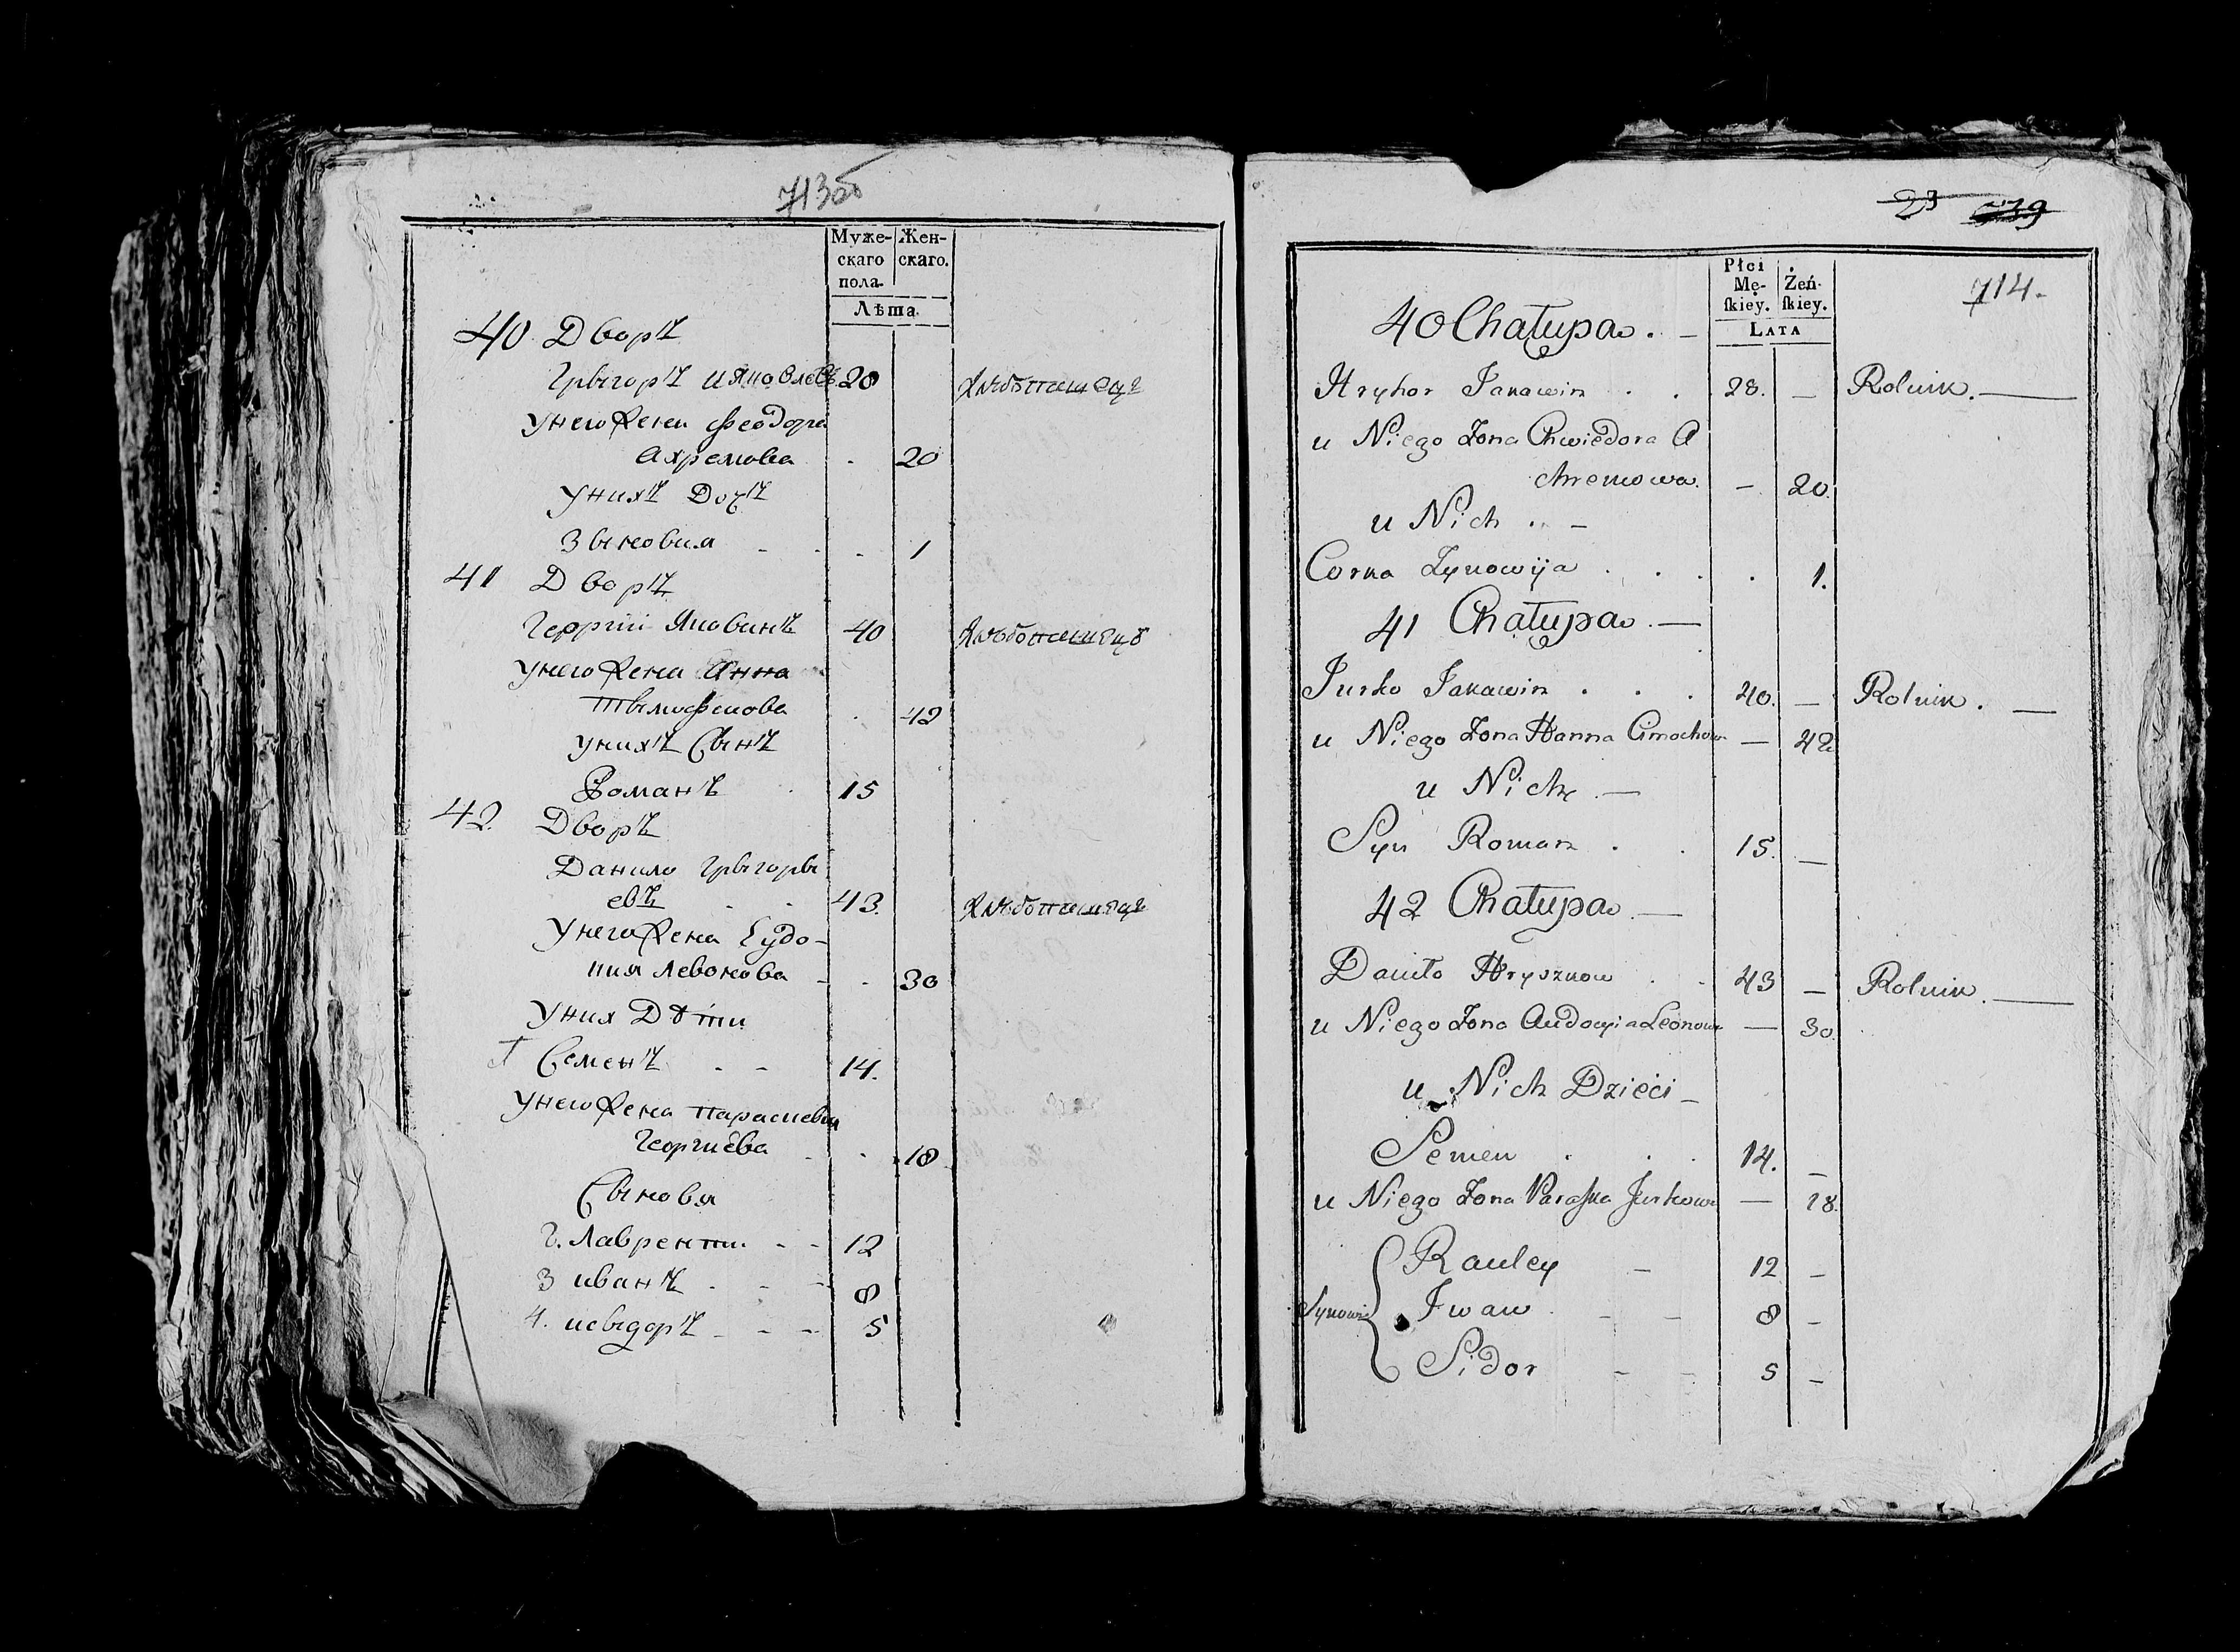 713об
Муже-
скаго
пола.
Жен-
скаго.
Лѣта.
40 Дворъ
Грыгоръ 28 Хлѣбопашецъ
Унего жена Феодора
Ахремова 20
Унихъ Дочъ
Зыновия 1
41 Дворъ
Георгии Яковинъ 40 Хлѣбопашецъ
Унего жена Анна
Тымофеиова 42
Унихъ Сынъ
Романъ 15
42. Дворъ
Данило Грыгоры
евъ 43. Хлѣбопашецъ
Унего жена Еудо-
кия Левонова 30
Уних Дѣти
Семенъ 14.
Унего жена Параскевия
Георгиева 18
Сыновя
2. Лаврентии 12
3 иванъ 8
4. исыдоръ 5
23 639
714.
Płci
Mę-
ſkiey.
Żeń-
ſkiey.
LATA
40 Chałupa. —
Hryhor Jakawin . . 28. — Rolnik. —
u Niego Żona Chwiedora A
chremowa. — 20.
u Nich . . —
Corka Zynowija . . . . 1.
41 Chałupa. —
Jurko Jakawin . . . 40. — Rolnik. —
u Niego Żona Hanna Cimochowa — 42
u Nich . —
Syn Roman . . 15. —
42 Chałupa. —
Daniło Hryszkow . . 43 — Rolnik. —
u Niego Żona Audocyia Leonowa — 30.
u Nich Dzieci —
Semen . . . 14. —
u Niego Żona Paraſka Jurkowa — 18.
Rauley — 12 —
Synowie Jwan — — 8 —
Sidor — — 5 —